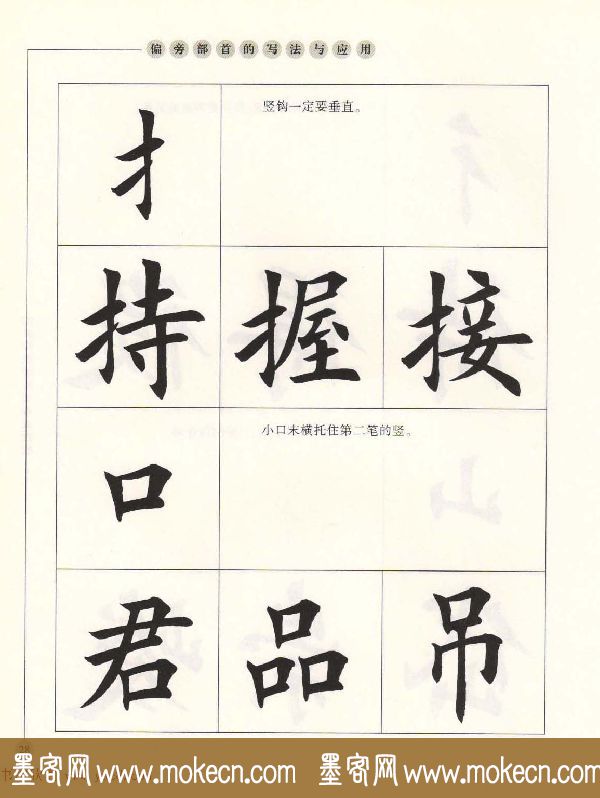 偏旁部首的写法与应用
扌
竖钩一定要垂直。
持 握 接
口
小口末横托住第二笔的竖。
君 品 吊
28
墨客网 www.mokecn.com 墨客网 www.mokecn.com